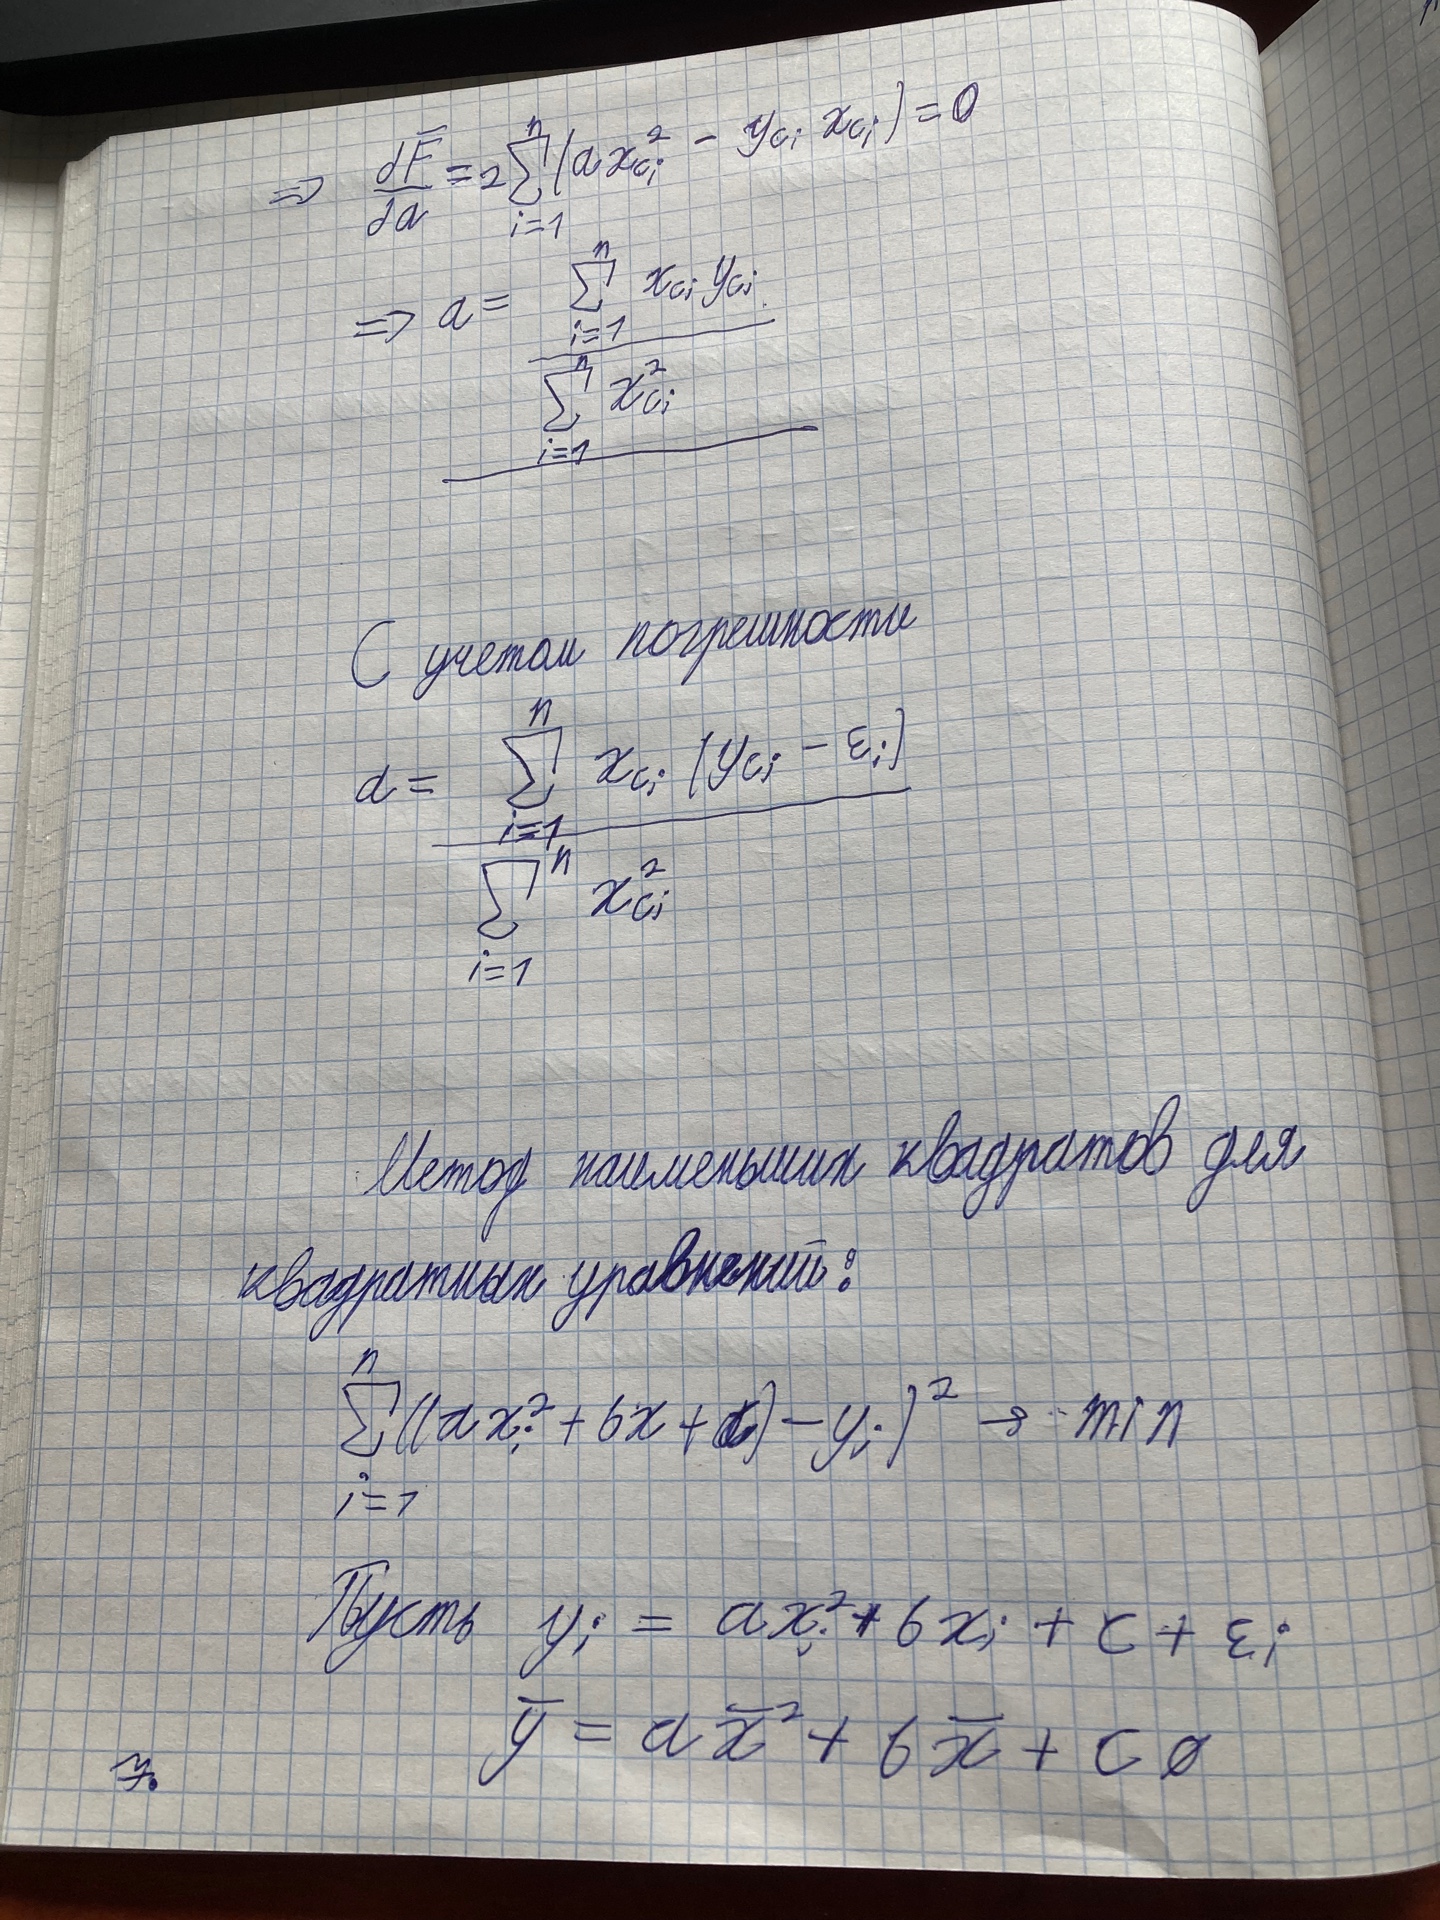 ⇒ dF̅/da = 2 ∑_{i=1}^{n} (a x_{ci}^2 - y_{ci} x_{ci}) = 0
⇒ a = ∑_{i=1}^{n} x_{ci} y_{ci} / ∑_{i=1}^{n} x_{ci}^2
С учетом погрешности
a = ∑_{i=1}^{n} x_{ci} (y_{ci} - ε_i) / ∑_{i=1}^{n} x_{ci}^2
Метод наименьших квадратов для
квадратных уравнений:
∑_{i=1}^{n} ((a x_i^2 + bx + c) - y_i)^2 → min
Пусть y_i = a x_i^2 + b x_i + c + ε_i
y̅ = a x̅^2 + b x̅ + c
7.